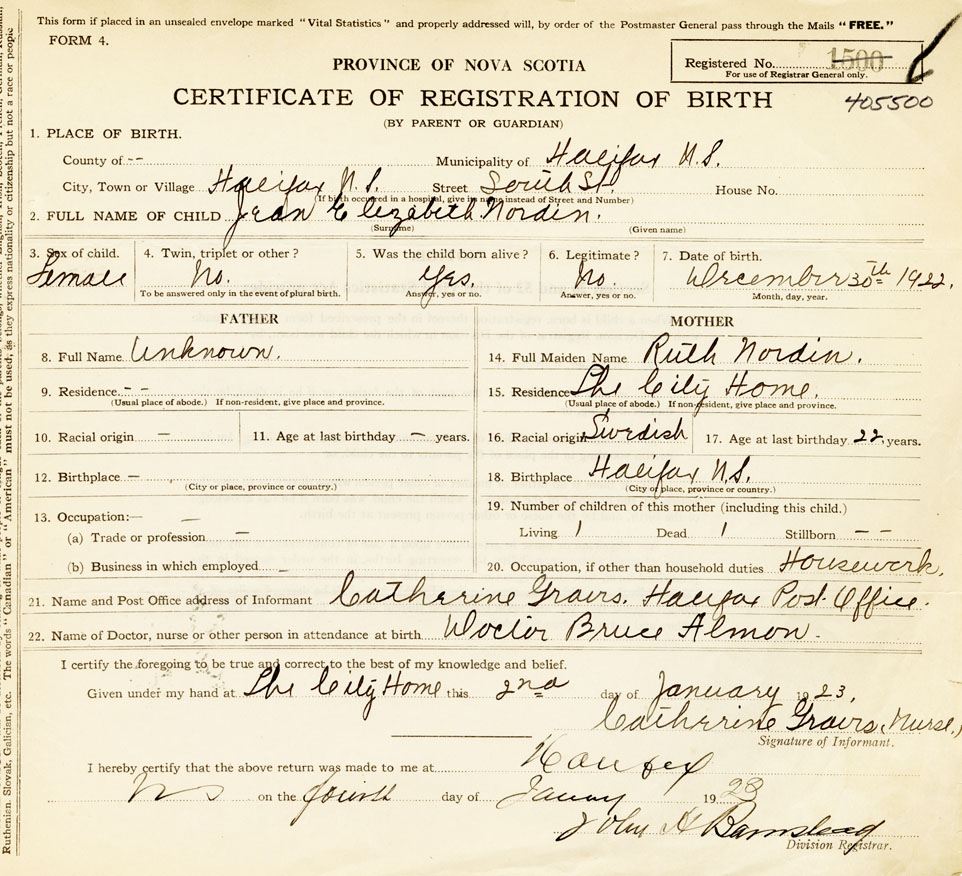 This form if placed in an unsealed envelope marked "Vital Statistics" and properly addressed will, by order of the Postmaster General pass through the Mails "FREE."
FORM 4.
Registered No. 1500
For use of Registrar General only.
405500
PROVINCE OF NOVA SCOTIA
CERTIFICATE OF REGISTRATION OF BIRTH
(BY PARENT OR GUARDIAN)
1. PLACE OF BIRTH.
County of -- Municipality of Halifax N.S.
City, Town or Village Halifax N.S. Street South St. House No.
(If birth occurred in a hospital, give its name instead of Street and Number)
2. FULL NAME OF CHILD Jean Elizabeth Nordin.
(Surname) (Given name)
3. Sex of child. 4. Twin, triplet or other? 5. Was the child born alive? 6. Legitimate? 7. Date of birth.
Female No. Yes. No. December 30th 1922.
To be answered only in the event of plural birth. Answer, yes or no. Answer, yes or no. Month, day, year.
FATHER MOTHER
8. Full Name Unknown. 14. Full Maiden Name Ruth Nordin.
9. Residence -- 15. Residence The City Home.
(Usual place of abode.) If non-resident, give place and province. (Usual place of abode.) If non-resident, give place and province.
10. Racial origin — 11. Age at last birthday — years. 16. Racial origin Swedish 17. Age at last birthday 22 years.
12. Birthplace — 18. Birthplace Halifax N.S.
(City or place, province or country.) (City or place, province or country.)
13. Occupation:— — 19. Number of children of this mother (including this child.)
(a) Trade or profession — Living 1 Dead 1 Stillborn --
(b) Business in which employed — 20. Occupation, if other than household duties Housework.
21. Name and Post Office address of Informant Catherine Halifax Post. Office.
22. Name of Doctor, nurse or other person in attendance at birth Doctor Bruce Almon.
I certify the foregoing to be true and correct to the best of my knowledge and belief.
Given under my hand at The City Home this 2nd day of January 1923.
Catherine (Nurse.)
Signature of Informant.
I hereby certify that the above return was made to me at Halifax
NS on the fourth day of January 1923
John H Barnstead
Division Registrar.
Ruthenian, Slovak, Galician, etc. The words "Canadian" or "American" must not be used, as they express nationality or citizenship but not a race or people